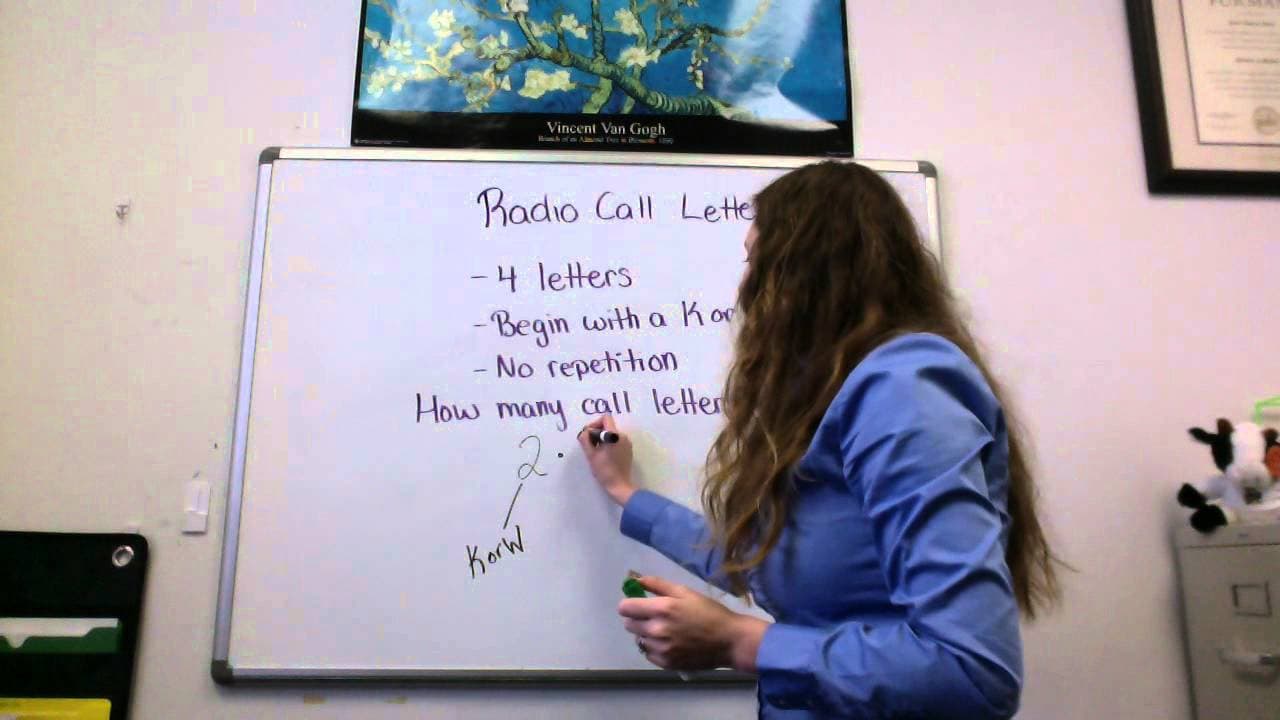 Vincent Van Gogh
Branch of an Almond Tree in Blossom, 1890
Radio Call Lette
- 4 letters
- Begin with a K or
- No repetition
How many call letter
2 ·
K or W